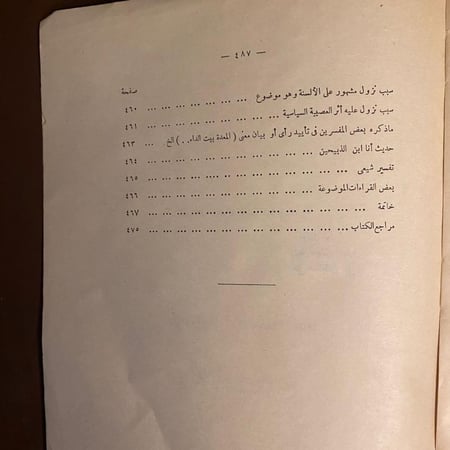 — ٤٨٧ —
صفحة
سبب نزول مشهور على الألسنة وهو موضوع ... ... ... ... ... ... ... ٤٦٠
سبب نزول عليه أثر العصبية السياسية ... ... ... ... ... ... ... ... ٤٦١
ماذكره بعض المفسرين فى تأييد رأى أو بيان معنى ( المعدة بيت الداء . . ) الخ ... ٤٦٣
حديث أنا ابن الذبيحين ... ... ... ... ... ... ... ... ... ... ٤٦٤
تفسير شيعى ... ... ... ... ... ... ... ... ... ... ... ... ٤٦٥
بعض القراءات الموضوعة ... ... ... ... ... ... ... ... ... ... ٤٦٦
خاتمة ... ... ... ... ... ... ... ... ... ... ... ... ٤٦٧
مراجع الكتاب ... ... ... ... ... ... ... ... ... ... ... ... ٤٧٥